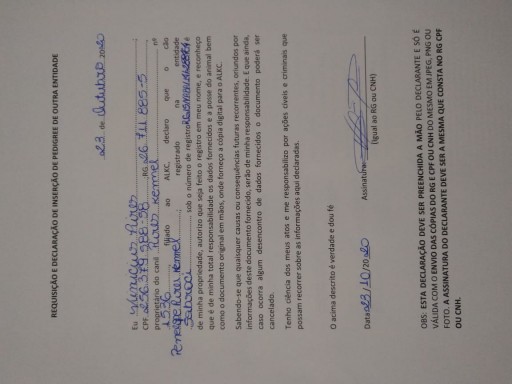 REQUISIÇÃO E DECLARAÇÃO DE INSERÇÃO DE PEDIGREE DE OUTRA ENTIDADE
23 de Outubro 2020
Eu Vinicius Pires
CPF 256.379.588-58 RG 26.711.885-5
proprietário do canil Pires Kennel nº
1536 filiado ao ALKC, declaro que o cão
Penelope Pires Kennel registrado na entidade
Sobraci sob o número de registro é
de minha propriedade, autorizo que seja feito o registro em meu nome, e reconheço
que é de minha total responsabilidade os dados fornecidos e a posse do animal bem
como o documento original em mãos, onde forneço a cópia digital para o ALKC.
Sabendo-se que quaisquer causas ou consequências futuras recorrentes, oriundos por
informações deste documento fornecido, serão de minha responsabilidade. E que ainda,
caso ocorra algum desencontro de dados fornecidos o documento poderá ser
cancelado.
Tenho ciência dos meus atos e me responsabilizo por ações cíveis e criminais que
possam recorrer sobre as informações aqui declaradas.
O acima descrito é verdade e dou fé
Data 23/10/2020 Assinatura
(Igual ao RG ou CNH)
OBS: ESTA DECLARAÇÃO DEVE SER PREENCHIDA A MÃO PELO DECLARANTE E SÓ É
VÁLIDA COM O ENVIO DAS CÓPIAS DO RG E CPF OU CNH DO MESMO EM JPEG, PNG OU
FOTO. A ASSINATURA DO DECLARANTE DEVE SER A MESMA QUE CONSTA NO RG CPF
OU CNH.